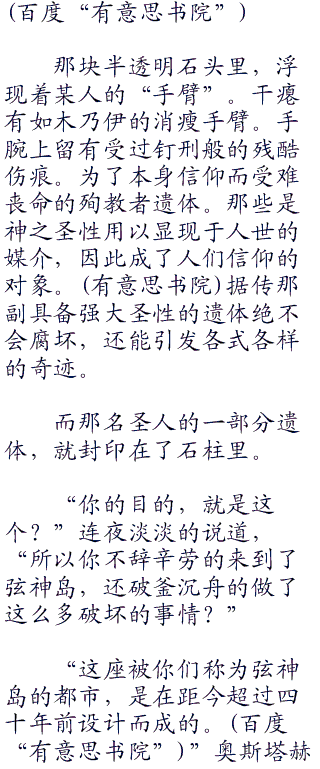 (百度“有意思书院”)
那块半透明石头里，浮
现着某人的“手臂”。干瘪
有如木乃伊的消瘦手臂。手
腕上留有受过钉刑般的残酷
伤痕。为了本身信仰而受难
丧命的殉教者遗体。那些是
神之圣性用以显现于人世的
媒介，因此成了人们信仰的
对象。(有意思书院)据传那
副具备强大圣性的遗体绝不
会腐坏，还能引发各式各样
的奇迹。
而那名圣人的一部分遗
体，就封印在了石柱里。
“你的目的，就是这
个？”连夜淡淡的说道，
“所以你不辞辛劳的来到了
弦神岛，还破釜沉舟的做了
这么多破坏的事情？”
“这座被你们称为弦神
岛的都市，是在距今超过四
十年前设计而成的。(百度
“有意思书院”)”奥斯塔赫